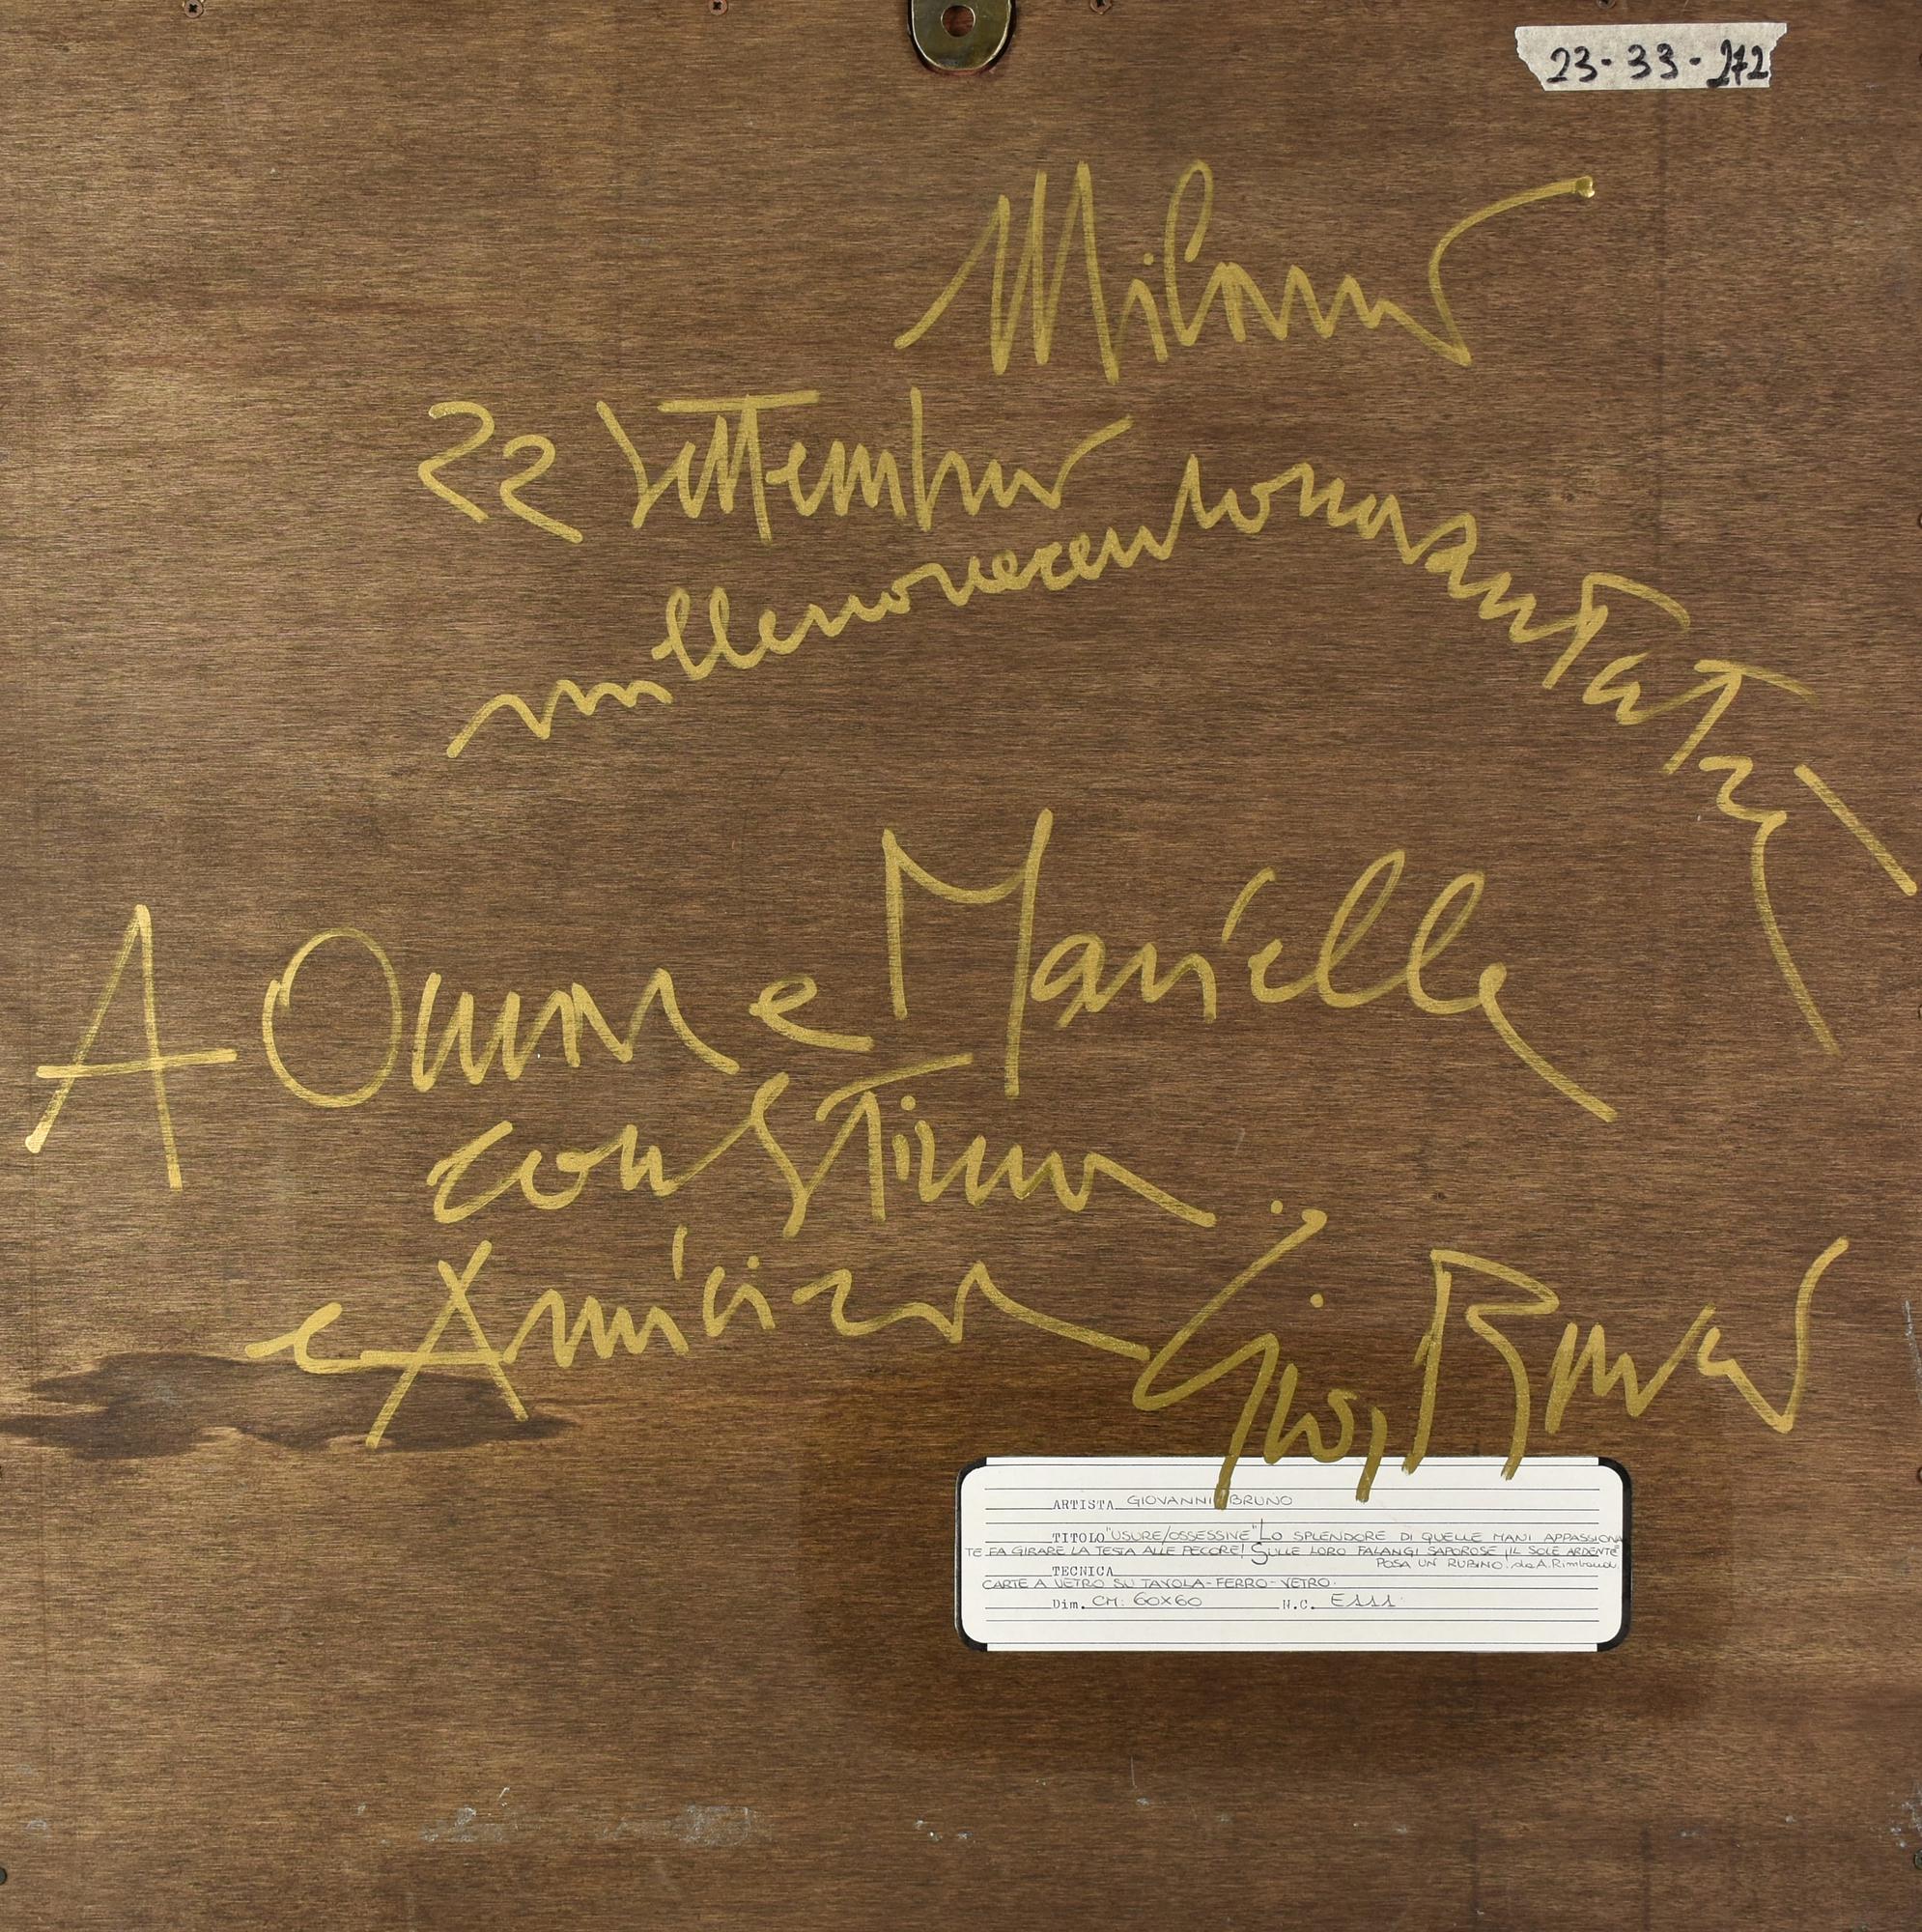 23-33-272
Milano
22 settembre
millenovecentonovantatre
A e Mariella
con stima
e Amicizia Gio, Bruno
ARTISTA GIOVANNI BRUNO
TITOLO "USURE/OSSESSIVE" LO SPLENDORE DI QUELLE MANI APPASSIONA
TE FA GIRARE LA TESTA ALLE PECORE! SULLE LORO FALANGI SAPOROSE, IL SOLE ARDENTE
POSA UN RUBINO. da A. Rimbaud
TECNICA
CARTE A VETRO SU TAVOLA-FERRO-VETRO.
Dim. CM: 60X60 N.C. E111